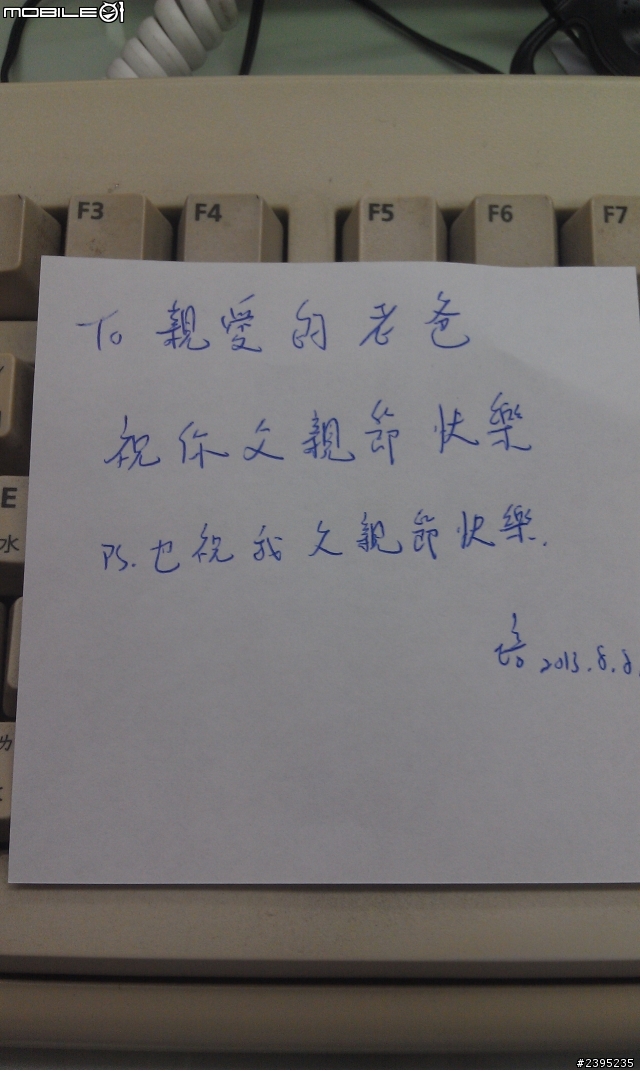 MOBILE01
F3 F4 F5 F6 F7
To 親愛的老爸
祝你父親節快樂
E
水
PS. 也祝我父親節快樂.
培 2013.8.8.
ㄌ
#2395235